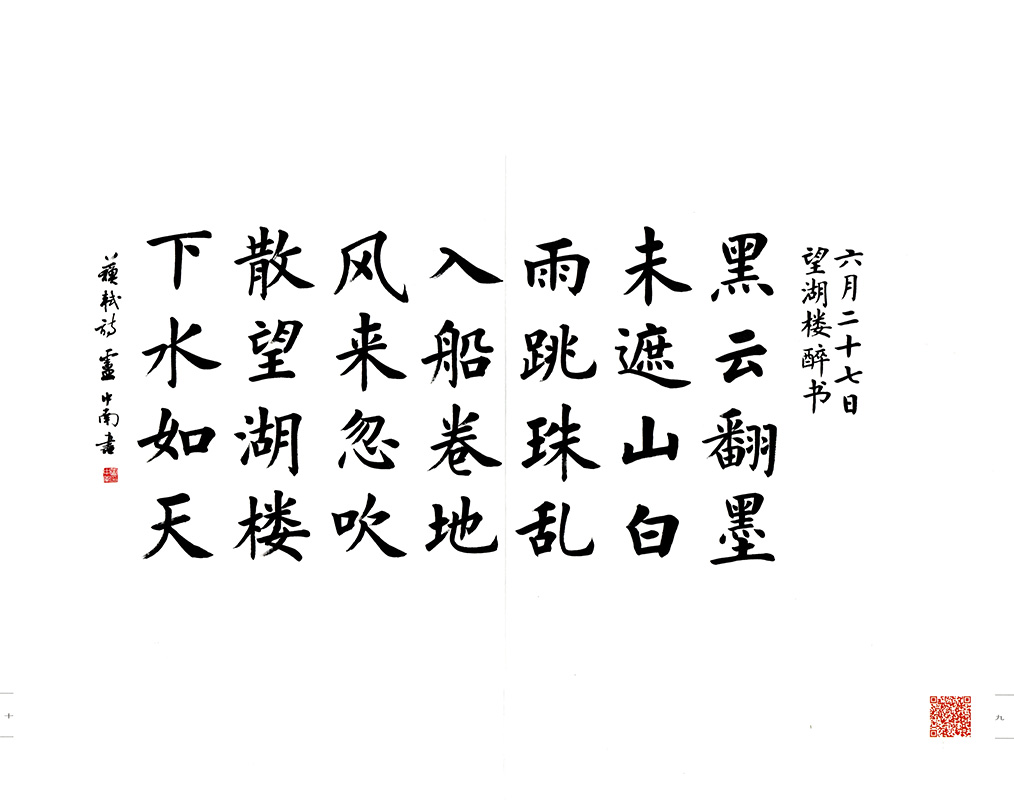 六月二十七日
望湖楼醉书
黑云翻墨
未遮山白
雨跳珠乱
入船卷地
风来忽吹
散望湖楼
下水如天
苏轼诗 卢中南书
九
十